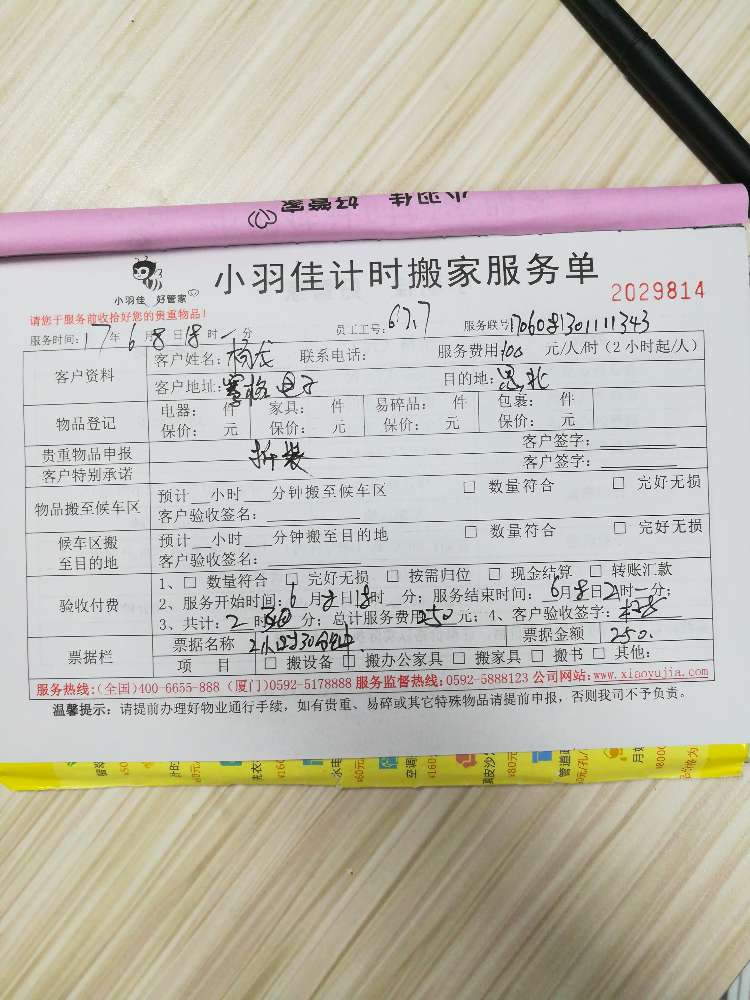 小羽佳 好管家
小羽佳 好管家
小羽佳计时搬家服务单
2029814
请您于服务前收拾好您的贵重物品!
服务时间:17年6月8日18时一分 员工工号: 服务联号:1706081301111343
客户资料 客户姓名:杨龙 联系电话: 服务费用100元/人/时(2小时起/人)
客户地址:赛格电子 目的地:思北
物品登记 电器: 件 家具: 件 易碎品: 件 包裹: 件
保价: 元 保价: 元 保价: 元 保价: 元
贵重物品申报 客户签字:
客户特别承诺 拆装 客户签字:
物品搬至候车区 预计__小时___分钟搬至候车区 □ 数量符合 □ 完好无损
客户验收签名:
候车区搬至目的地 预计__小时___分钟搬至目的地 □ 数量符合 □ 完好无损
客户验收签名:
验收付费 1、□ 数量符合 □ 完好无损 □ 按需归位 □ 现金结算 □ 转账汇款
2、服务开始时间:6月8日18时__分;服务结束时间:6月8日21时一分;
3、共计:2时30分;总计服务费用250元;4、客户验收签字:
票据栏 票据名称 2小时30分钟 票据金额 250.
项 目 □ 搬设备 □ 搬办公家具 □ 搬家具 □ 搬书 □ 其他:
服务热线:(全国)400-6655-888 (厦门)0592-5178888 服务监督热线:0592-5888123 公司网站:www.xiaoyujia.com
温馨提示:请提前办理好物业通行手续,如有贵重、易碎或其它特殊物品请提前申报,否则我司不予负责。